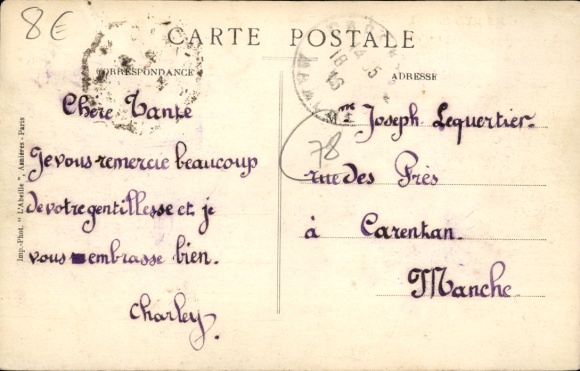 8€
CARTE POSTALE
CORRESPONDANCE
ADRESSE
Chère Tante
Je vous remercie beaucoup
de votre gentillesse et je
vous embrasse bien.
Charley.
Mme Joseph Lequertier.
rue des Près
à Carentan.
Manche.
78
Imp.-Phot. "L'Abeille", Asnières-Paris